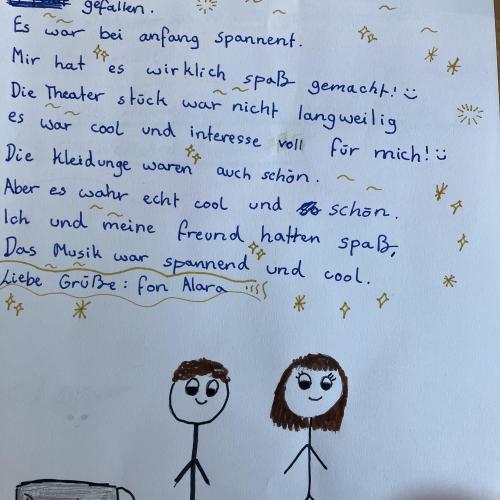 gefallen.
Es war bei anfang spannent.
Mir hat es wirklich spaß gemacht! :)
Die Theater stück war nicht langweilig
es war cool und interesse voll für mich! :)
Die kleidunge waren auch schön.
Aber es wahr echt cool und schön.
Ich und meine freund hatten spaß,
Das Musik war spannend und cool.
Liebe Grüße: fon Alara